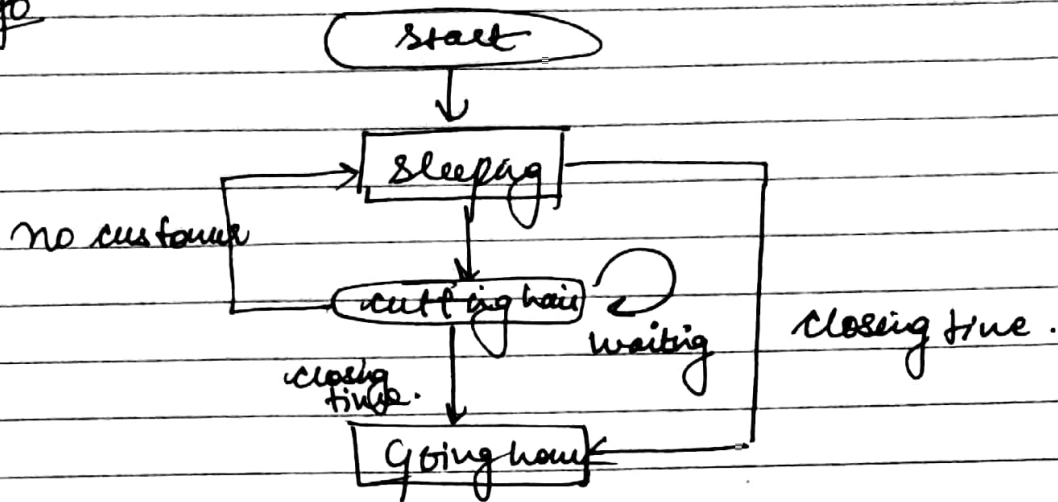 Start
sleeping
no customer
cutting hair
waiting
closing time.
closing time.
Going home